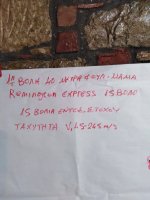 1η ΒΟΛΗ 40 ΜΕΤΡΑ ΦΟΥΛ-ΜΑΜΑ
Remington EXPRESS 15 ΒΟΛΟ
15 ΒΟΛΙΑ ΕΝΤΟΣ ΣΤΟΧΟΥ
ΤΑΧΥΤΗΤΑ V1,5-265 m/s